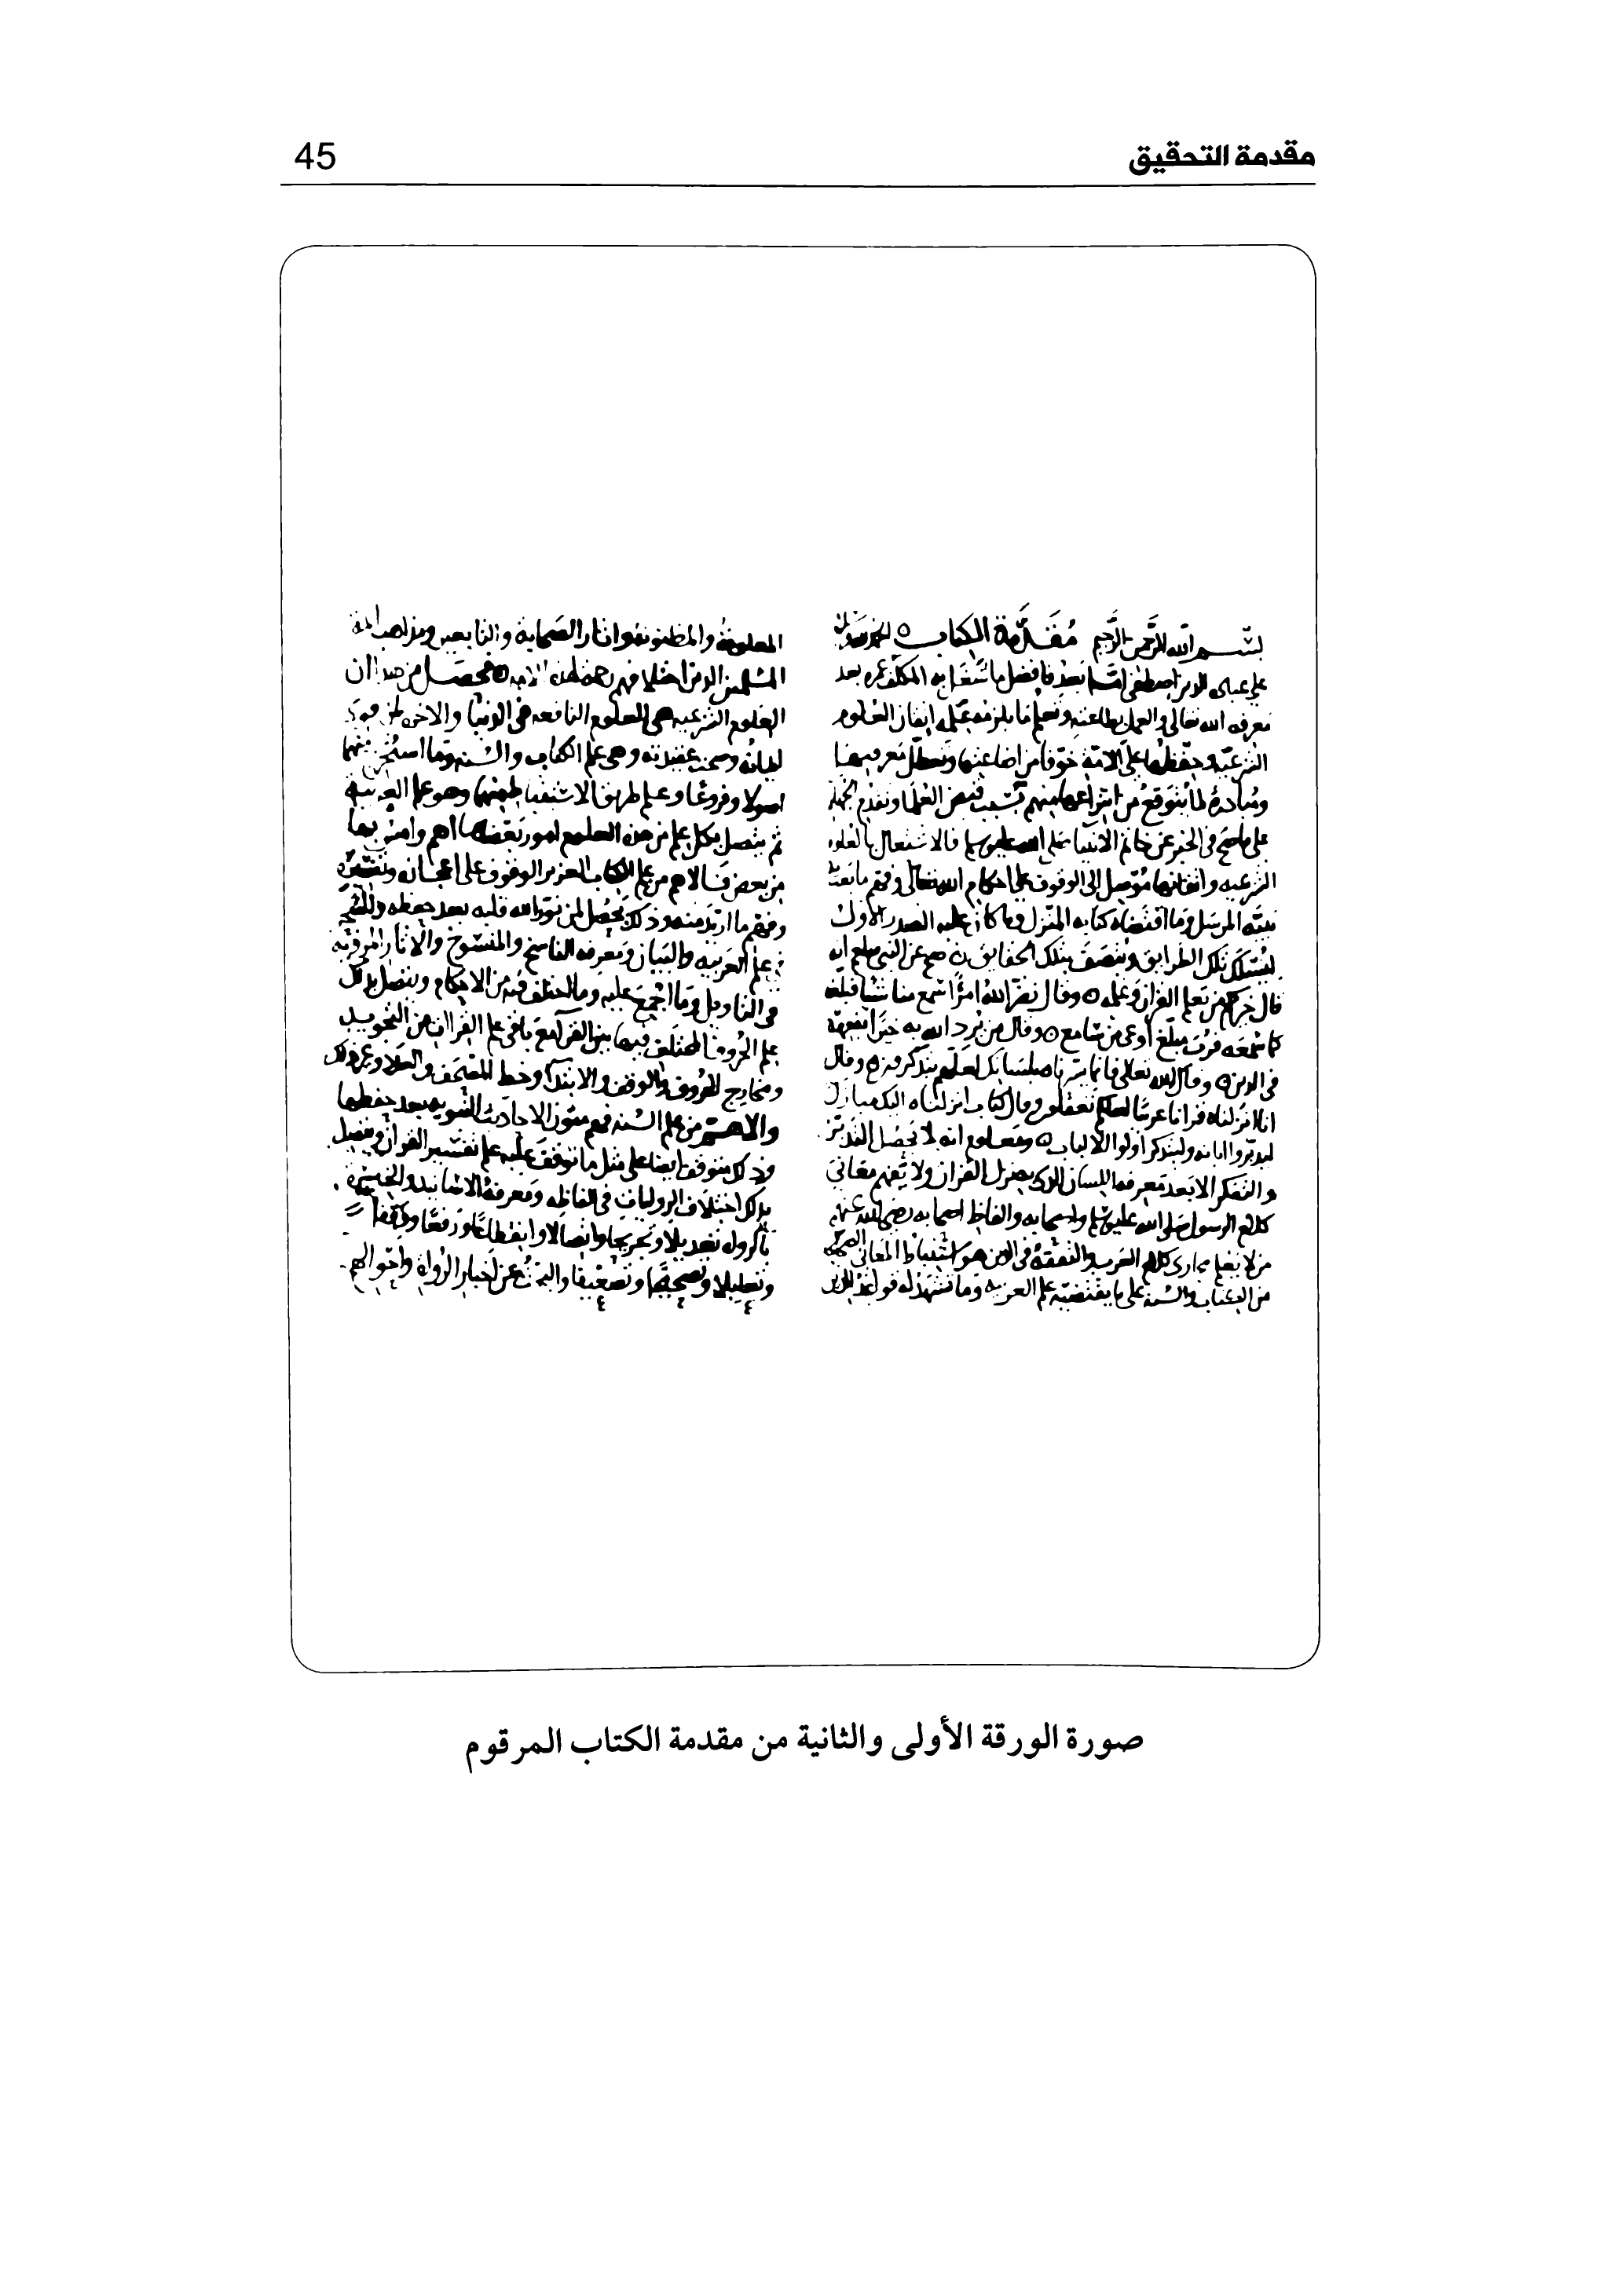 مقدمة التحقيق
45
بسم الله الرحمن الرحيم مقدمة الكتاب الحمد لله
على عباده الذين اصطفى اما بعد فافضل ما شغل به المكلف عمره بعد
معرفه الله تعالى والعمل بطاعته وتعلم ما يلزمه عمله اتقان العلوم
الشرعيه وحفظها على الامة خوفا من اضاعتها وتعطل
ومبادرة لما يتوقع من انتزاعها منهم بسبب قبض العلما وتقدم الجهلة
على ما صح في الخبر عن خاتم الانبيا صلى الله عليه وسلم فالاشتغال بالعلوم
الشرعيه واتقانها موصل الى الوقوف على احكام الله تعالى وفهم ما بعث
نبيه المرسل وما اقتضاه كتابه المنزل وما كان عليه الصدر الاول
ليسلك تلك الطرايق ويتصف بتلك الحقايق صح عن النبي صلعم انه
قال خيركم من تعلم القران وعلمه وقال نضر الله امرا سمع منا شيا فبلغه
كما سمعه فرب مبلغ اوعى من سامع وقال من يرد الله به خيرا يفقهه
في الدين وقال الله تعالى فانما يسرناه بلسانك لعلهم يتذكرون وقال
انا انزلناه قرانا عربيا لعلكم تعقلون وقال كتاب انزلناه اليك مبارك
ليدبروا اياته وليتذكر اولوا الالباب ومعلوم انه لا يحصل التدبر
والتفكر الا بعد معرفه اللسان الذي به نزل القران ولا يفهم معاني
كلام الرسول صلى الله عليه وسلم واصحابه والفاظ اصحابه رضي الله عنهم
من لا يعلم مجارى كلام العرب والتفقه في الدين هو استنباط المعاني الصحيحه
من الكتاب والسنه على ما يقتضيه علم العربيه وما تشهد له قواعد الدين
المعلومة والمظنونه واثار الصحابة والتابعين ومذاهب ايمة
المسلمين الذين اختلافهم رحمه لهذه الامه فحصل من هذا ان
العلوم الشرعيه هي العلوم النافعه في الدنيا والاخره لمن
ايمانه وصحت عقيدته وهي علم الكتاب والسنه وما استخرج منهما
اصولا وفروعا وعلم طريق الاستنباط منهما وهو علم العربية
ثم يتصل بكل علم من هذه العلوم امور بعضها اهم وامس بها
من بعض فالاهم من علم الكتاب العزيز الوقوف على اعجازه وتفسيره
وفهم ما اريد منه وذلك يحصل لمن نور الله قلبه بعد حفظه والتبحر
في علم العربيه والبيان ومعرفه الناسخ والمنسوخ والاثار المرويه
في التاويل وما اجمع عليه وما اختلف فيه من الاحكام ويتصل بذلك
علم الحروف المختلف فيها بين القراء مع باقي علم القراات من التجويد
ومخارج الحروف والوقف والابتدا وخط المصحف والعدد وغير ذلك
والاهم من علم السنه فهم متون الاحاديث النبويه بعد حفظها
وذلك متوقف ايضا على مثل ما توقف عليه علم تفسير القران ويتصل
بذلك اختلاف الروايات في الفاظه ومعرفة الاسانيد والخبرة
بالرواه تعديلا وتجريحا واتصالا وانقطاعا ورفعا ووقفا
وتعليلا وتصحيحا وتضعيفا والبحث عن اخبار الرواة واحوالهم
صورة الورقة الأولى والثانية من مقدمة الكتاب المرقوم